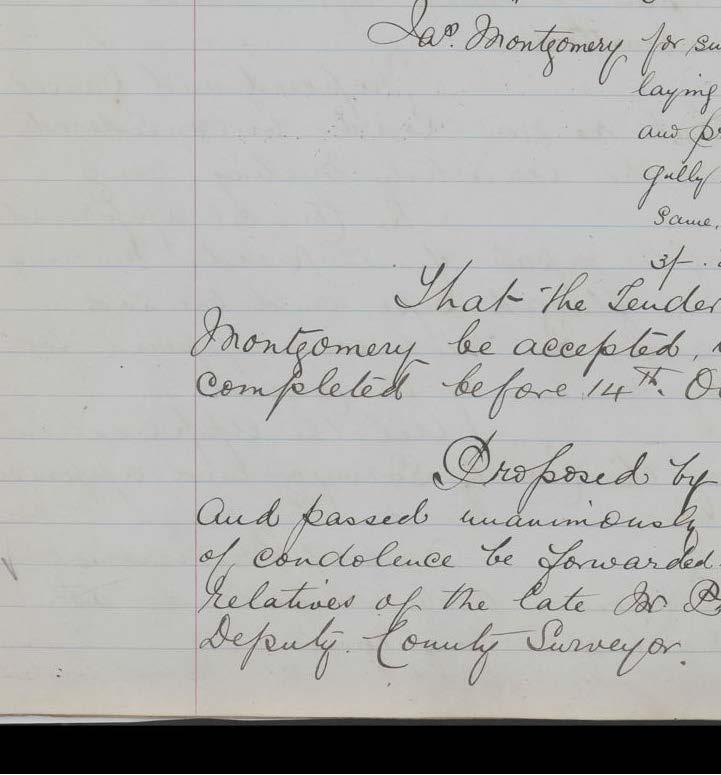 Jas. Montgomery for su
laying
and pr
gully
same,
3/-.
That the Tender
Montgomery be accepted,
completed before 14th. Oc
Proposed by
And passed unanimously
of condolence be forwarded
relatives of the late Mr
Deputy County Surveyor.